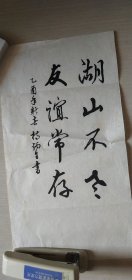 湖山不老
友谊常存
乙酉年新春杨炳昌书